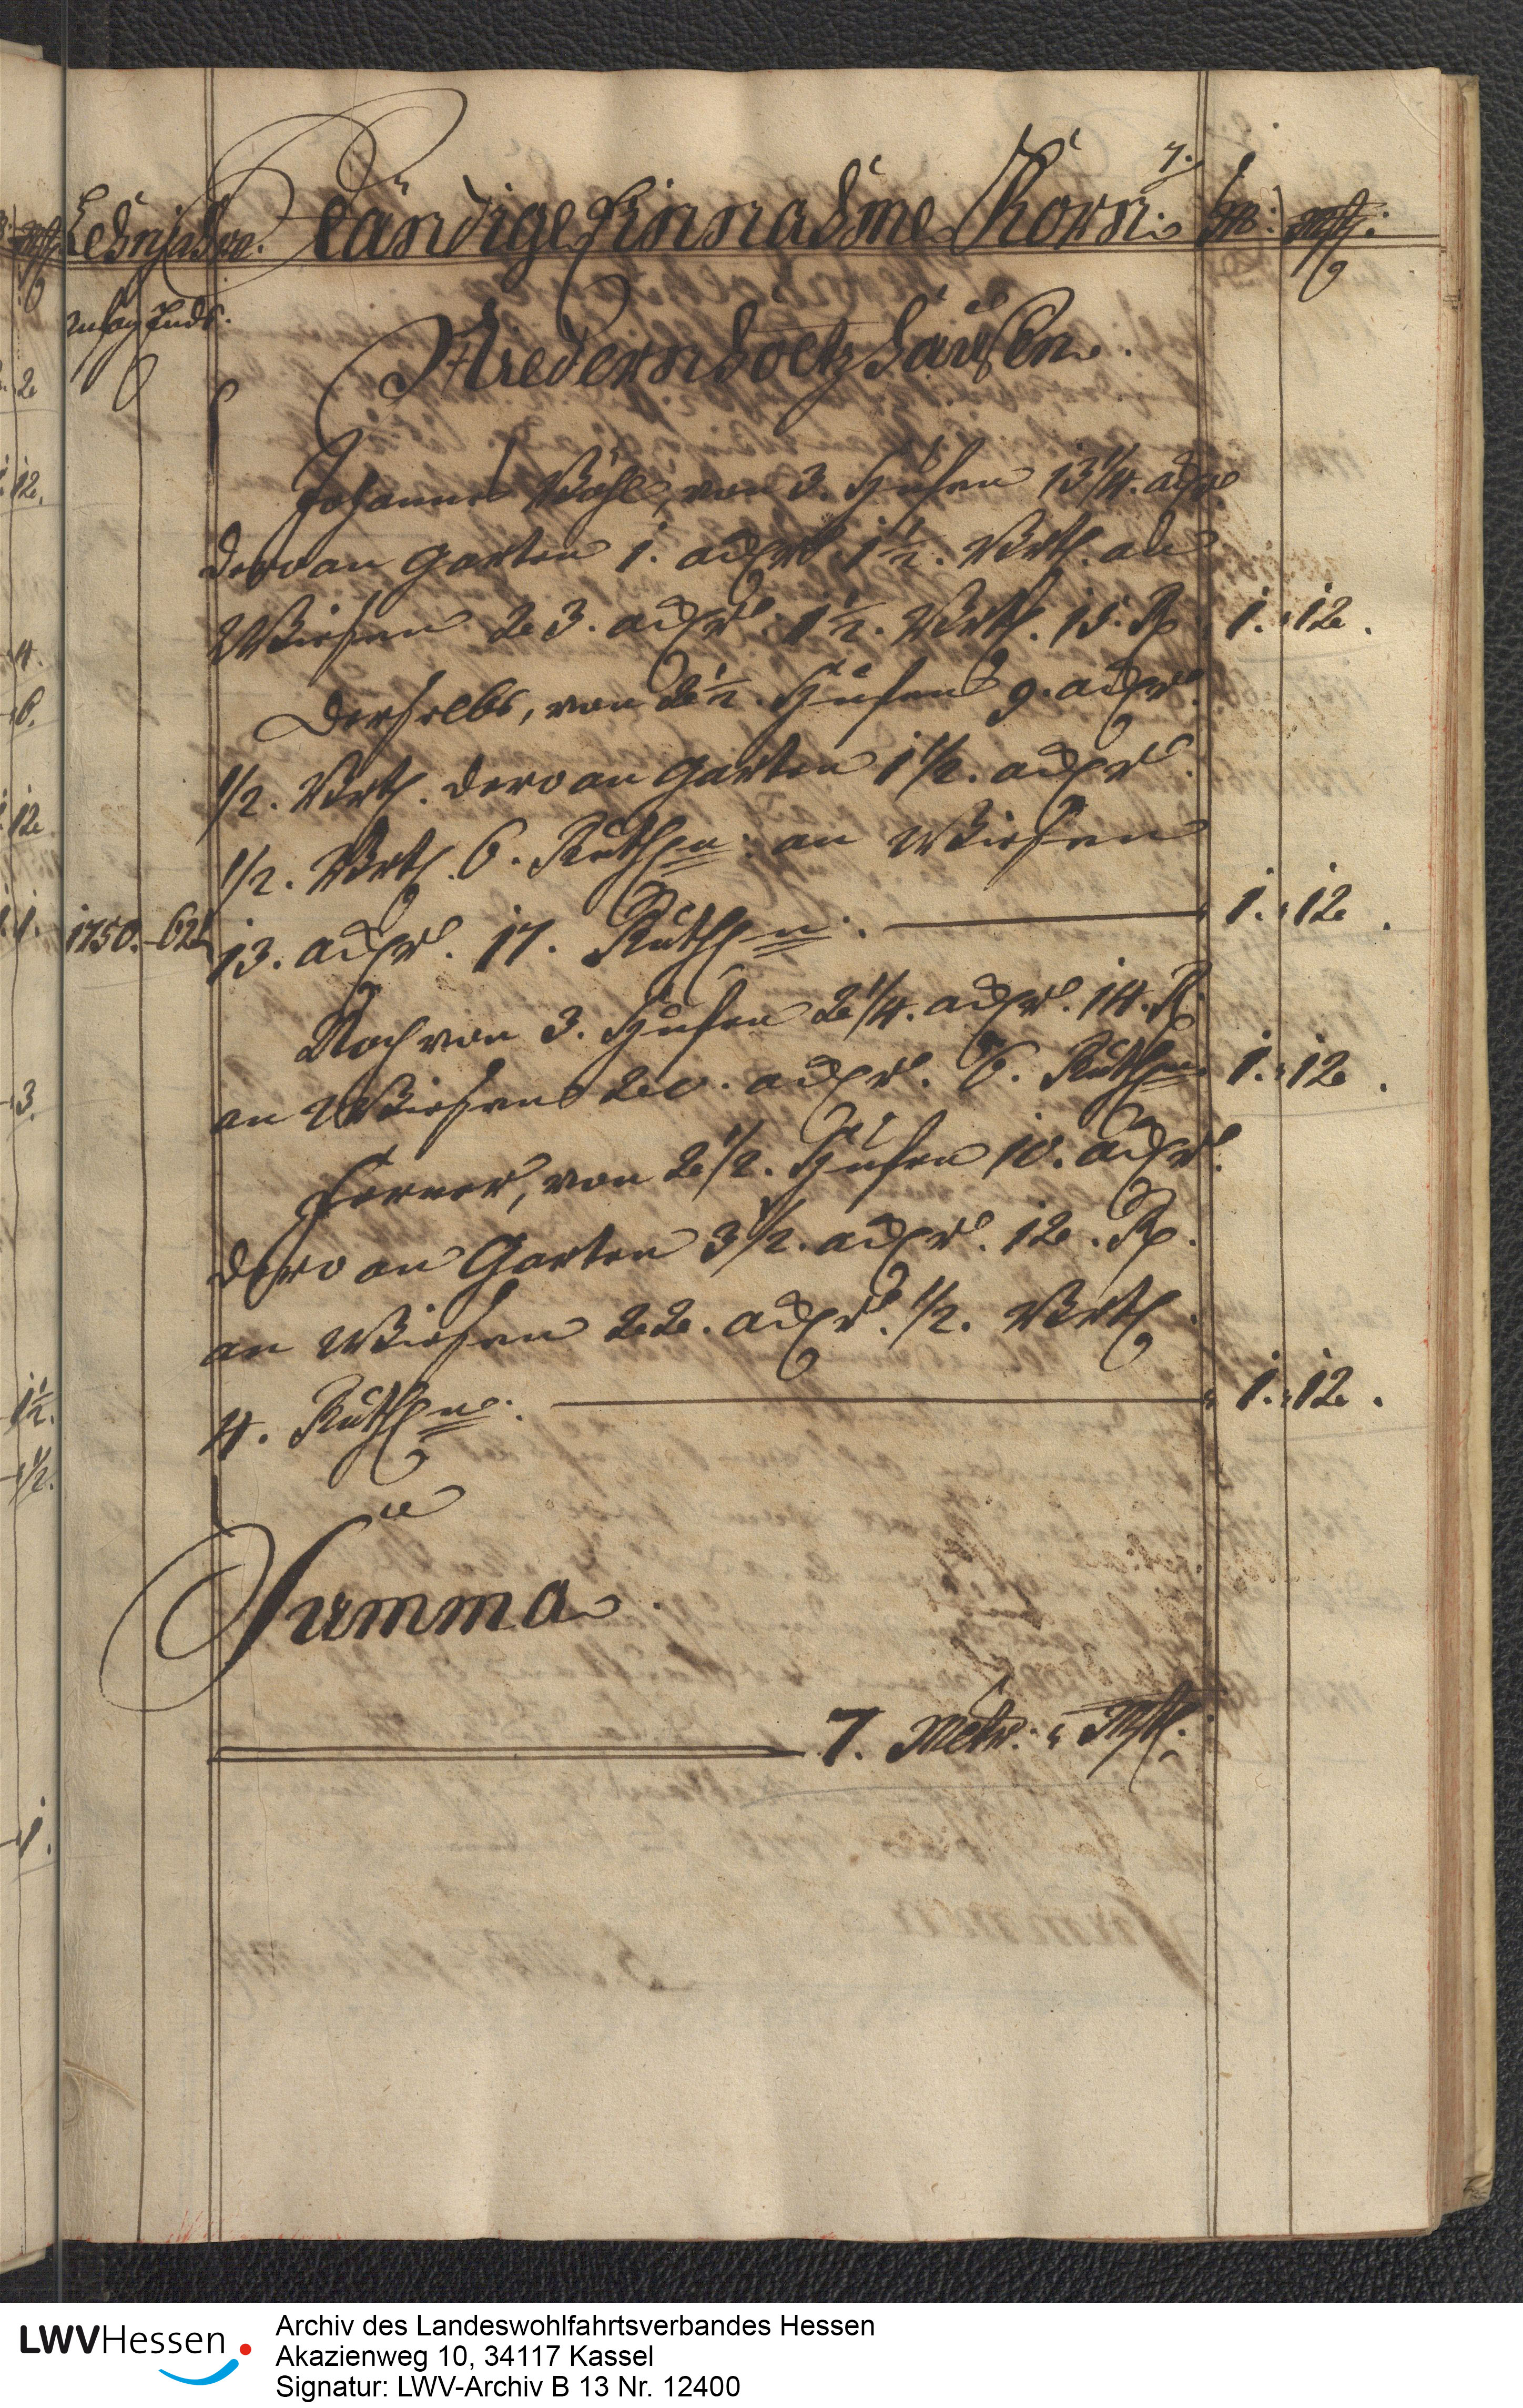 7.
Lehnjahre. Ständige Einnahme Korn: Mtr: Mtz:
anfang Ende.
Niedernhoetzhausen.
Johannes Böhle, von 3. Hufen 13 1/4. acker
dero an Garten 1. acker 1 1/2. Vrtl. an
Wiesen 23. acker 1 1/2. Vrtl. 15. R 1. 12.
Derselbe, von 2 1/2. Hufen 9. acker
1/2. Vrtl. dero an Garten 1 1/2. acker
1/2. Vrtl. 6. Ruthen. an Wiesen
1750. 62 13. acker. 17. Ruthen. 1. 12.
Noch von 3. Hufen 2 1/4. acker. 14. R
an Wiesen 20. acker. 6. Ruthen 1. 12.
Ferner, von 2 1/2. Hufen 10. acker.
dero an Garten 3 1/2. acker. 12. R.
an Wiesen 22. acker. 1/2. Vrtl.
4. Ruthen. 1. 12.
Summa.
7. Mttr. Mtz.
LWVHessen
Archiv des Landeswohlfahrtsverbandes Hessen
Akazienweg 10, 34117 Kassel
Signatur: LWV-Archiv B 13 Nr. 12400